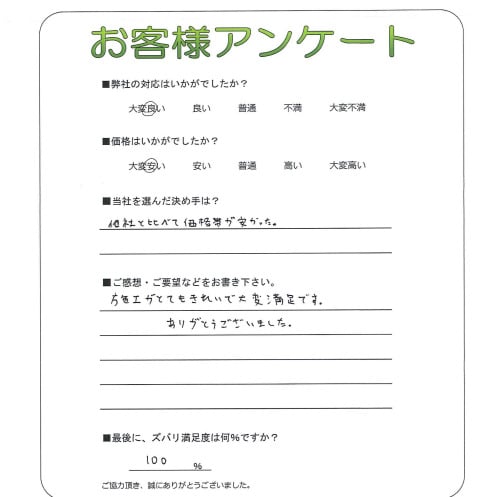 お客様アンケート
■弊社の対応はいかがでしたか？
大変良い 良い 普通 不満 大変不満
■価格はいかがでしたか？
大変安い 安い 普通 高い 大変高い
■当社を選んだ決め手は？
他社と比べて価格帯が安かった。
■ご感想・ご要望などをお書き下さい。
施工がとてもきれいで大変満足です。
ありがとうございました。
■最後に、ズバリ満足度は何％ですか？
100 ％
ご協力頂き、誠にありがとうございました。